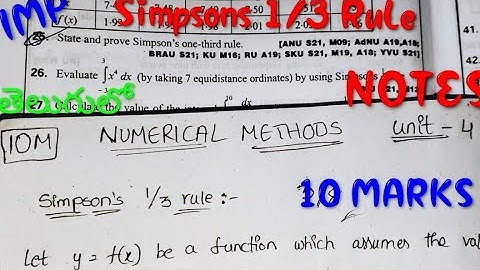 IMP
Simpsons 1/3 Rule
f(x) 1·99 2·01
25. State and prove Simpson's one-third rule. [ANU S21, M09; AdNU A19,A18;
BRAU S21; KU M16; RU A19; SKU S21, M19, A18; YVU S21]
26. Evaluate ∫ x⁴ dx (by taking 7 equidistance ordinates) by using Simpson's
3
-3
27. Calculate the value of the
dx
41.
42
తెలుగులో
NOTES
10M
NUMERICAL METHODS unit - 4
Simpson's 1/3 rule :-
10 MARKS
Let y = f(x) be a function which assumes the val